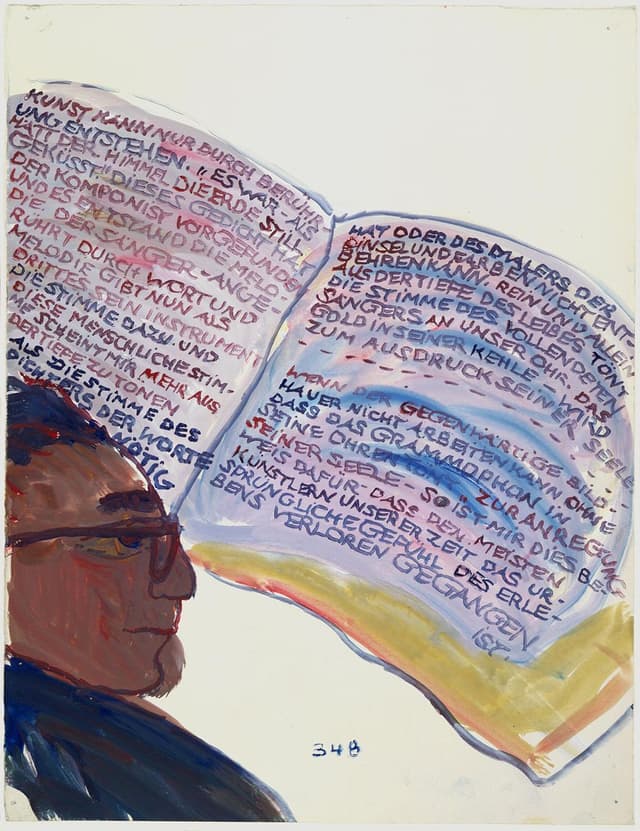 KUNST KANN NUR DURCH BERÜHR-
UNG ENTSTEHEN. „ES WAR - ALS
HÄTT DER HIMMEL DIE ERDE STILL
GEKÜSST" DIESES GEDICHT HAT
DER KOMPONIST VORGEFUNDEN
UND ES ENTSTAND DIE MELO-
DIE. DER SÄNGER - ANGE-
RÜHRT DURCH WORT UND
MELODIE GIBT NUN ALS
DRITTES SEIN INSTRUMENT
DIE STIMME DAZU. UND
DIESE MENSCHLICHE STIM-
ME SCHEINT MIR MEHR AUS
DER TIEFE ZU TÖNEN
ALS DIE STIMME DES
DICHTERS DER WORTE
NÖTIG
HAT ODER DES MALERS DER
PINSEL UND FARBEN NICHT ENT-
BEHREN KANN. REIN UND ALLEIN
AUS DER TIEFE DES LEIBES TÖNT
DIE STIMME DES VOLLENDETEN
SÄNGERS AN UNSER OHR. DAS
GOLD IN SEINER KEHLE - WIRD
ZUM AUSDRUCK SEINER SEELE
WENN DER GEGENWÄRTIGE BILD-
HAUER NICHT ARBEITEN KANN OHNE
DASS DAS GRAMMOPHON IN
SEINE OHREN TÖNT „ZUR ANREGUNG
SEINER SEELE - SO IST MIR DIES BE-
WEIS DAFÜR - DASS DEN MEISTEN
KÜNSTLERN UNSERER ZEIT DAS UR-
SPRÜNGLICHE GEFÜHL DES ERLE-
BENS VERLOREN GEGANGEN
IST.
348